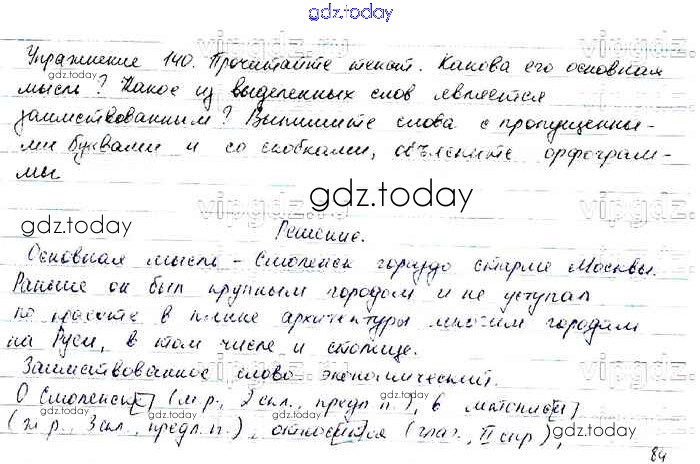 gdz.today
Упражнение 140. Прочитайте текст. Какова его основная
gdz.today
мысль? Какое из выделенных слов является
заимствованным? Выпишите слова с пропущенны-
ми буквами и со скобками, объясните орфограм-
мы
gdz.today
gdz.today
gdz.today
Решение.
Основная мысль - Смоленск гораздо старше Москвы.
Раньше он был крупным городом и не уступал
по красоте в плане архитектуры многим городам
на Руси, в том числе и столице.
Заимствованное слово экономический.
О Смоленск[е] (м.р., 2 скл., предл.п.), в летопис[и]
gdz.today
gdz.today
(ж.р., 3 скл., предл.п.), относ[и]тся (глаг., II спр),
84